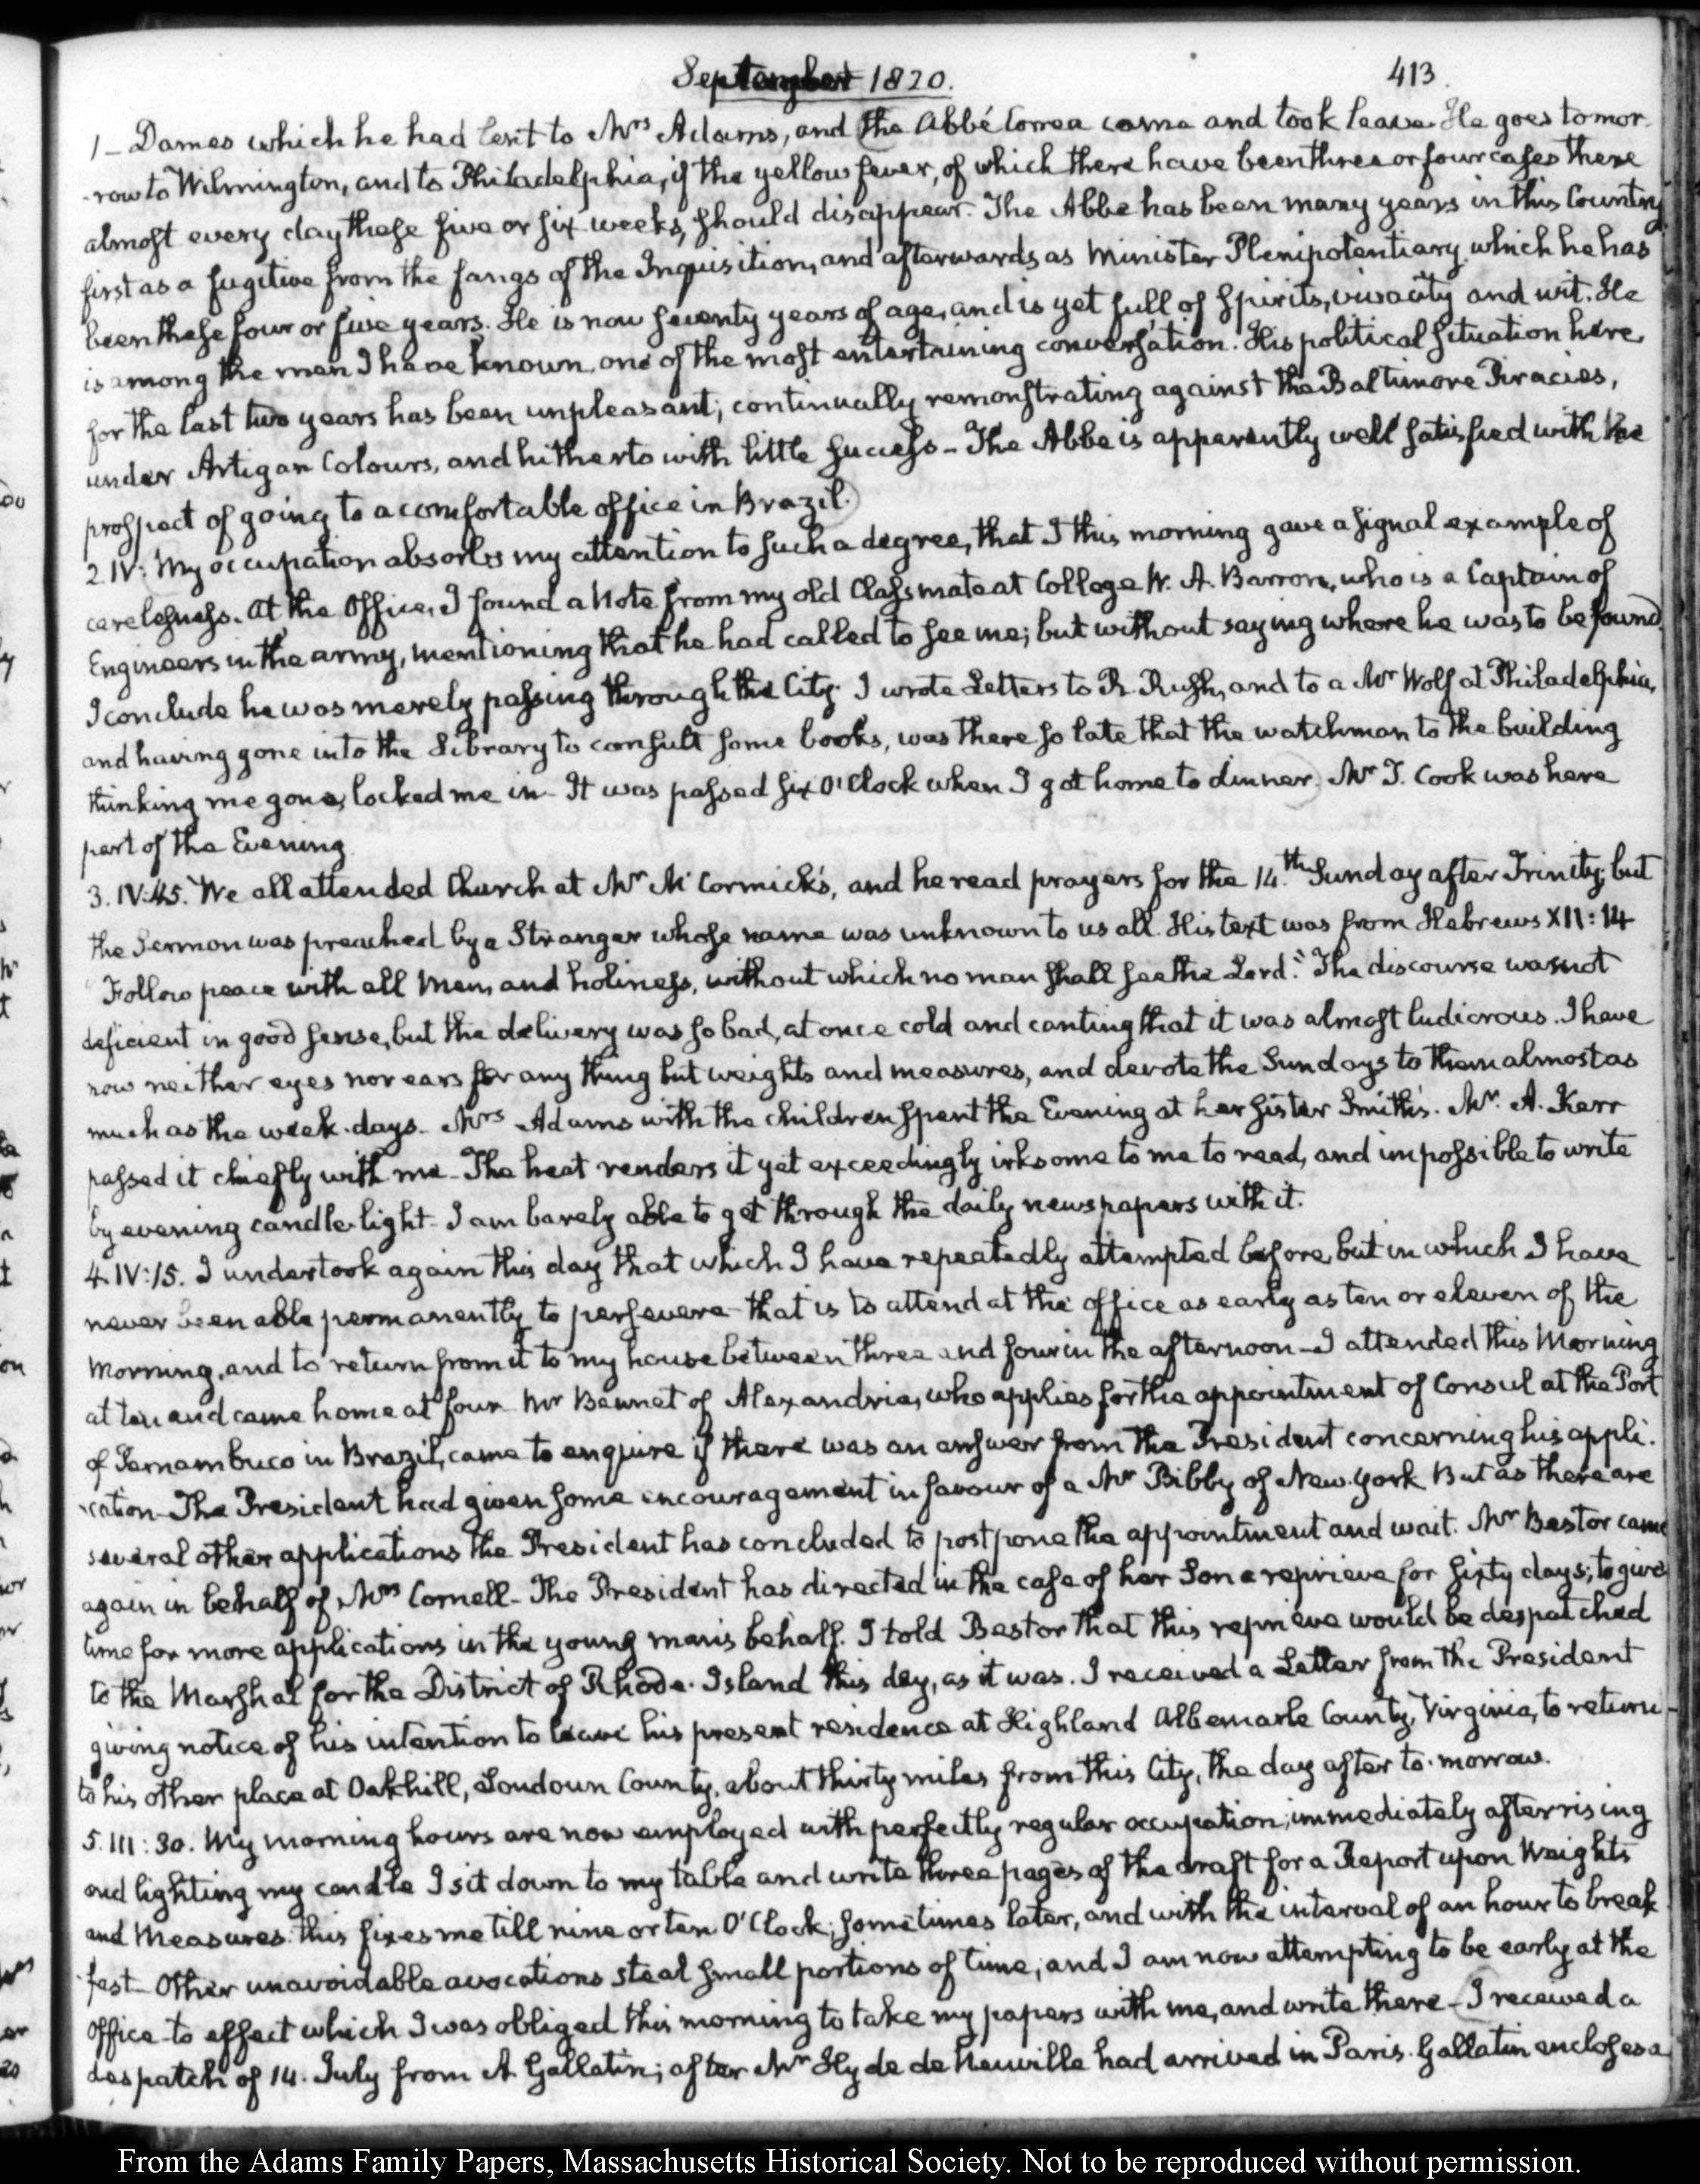 September 1820.
413.
1 — Dames which he had lent to Mrs Adams, and the Abbé Correa came and took leave. He goes tomor-
-row to Wilmington, and to Philadelphia, if the yellow fever, of which there have been three or four cases there
almost every day these five or six weeks, should disappear. The Abbe has been many years in this Country
first as a fugitive from the fangs of the Inquisition, and afterwards as Minister Plenipotentiary, which he has
been these four or five years. He is now seventy years of age, and is yet full of spirits, vivacity and wit. He
is among the men I have known, one of the most entertaining conversation. His political situation here
for the last two years has been unpleasant; continually remonstrating against the Baltimore Piracies,
under Artigan Colours, and hitherto with little success — The Abbe is apparently well satisfied with the
prospect of going to a comfortable office in Brazil.)
2. IV: My occupation absorbs my attention to such a degree, that I this morning gave a signal example of
carelesness. At the Office, I found a Note from my old Classmate at College W. A. Barron, who is a Captain of
Engineers in the army, mentioning that he had called to see me; but without saying where he was to be found.
I conclude he was merely passing through the City. I wrote Letters to R. Rush, and to a Mr Wolf at Philadelphia,
and having gone into the Library to consult some books, was there so late that the watchman to the building
thinking me gone, locked me in — It was passed six O'Clock when I got home to dinner) Mr T. Cook was here
part of the Evening
3. IV:45. We all attended Church at Mr McCormick's, and he read prayers for the 14.th Sunday after Trinity; but
the Sermon was preached by a Stranger whose name was unknown to us all. His text was from Hebrews XII: 14
"Follow peace with all Men, and holiness, without which no man shall see the Lord." The discourse was not
deficient in good sense, but the delivery was so bad, at once cold and canting that it was almost ludicrous. I have
now neither eyes nor ears for any thing but weights and measures, and devote the Sundays to them almost as
much as the week-days — Mrs Adams with the children spent the Evening at her Sister Smith's. Mr. A. Kerr
passed it chiefly with me — The heat renders it yet exceedingly irksome to me to read, and impossible to write
by evening candle-light — I am barely able to get through the daily newspapers with it.
4. IV:15. I undertook again this day that which I have repeatedly attempted before, but in which I have
never been able permanently to persevere — that is to attend at the office as early as ten or eleven of the
Morning, and to return from it to my house between three and four in the afternoon — I attended this Morning
at ten and came home at four — Mr Bennet of Alexandria, who applies for the appointment of Consul at the Port
of Parnambuco in Brazil, came to enquire if there was an answer from the President concerning his appli-
-cation — The President had given some encouragement in favour of a Mr Bibby of New-York But as there are
several other applications the President has concluded to postpone the appointment and wait. Mr Bestor came
again in behalf of Mrs Cornell — The President has directed in the case of her Son a reprieve for sixty days; to give
time for more applications in the young man's behalf. I told Bestor that this reprieve would be despatched
to the Marshal for the District of Rhode-Island this day, as it was. I received a Letter from the President
giving notice of his intention to leave his present residence at Highland Albemarle County, Virginia, to return
to his other place at Oakhill, Loudoun County, about thirty miles from this City, the day after to-morrow.
5. III: 30. My morning hours are now employed with perfectly regular occupation; immediately after rising
and lighting my candle I sit down to my table and write three pages of the draft for a Report upon Weights
and Measures. this fixes me till nine or ten O'Clock; sometimes later, and with the interval of an hour to break-
-fast — Other unavoidable avocations steal small portions of time; and I am now attempting to be early at the
Office — to effect which I was obliged this morning to take my papers with me, and write there — (I received a
despatch of 14. July from A Gallatin; after Mr Hyde de Neuville had arrived in Paris. Gallatin encloses a
From the Adams Family Papers, Massachusetts Historical Society. Not to be reproduced without permission.